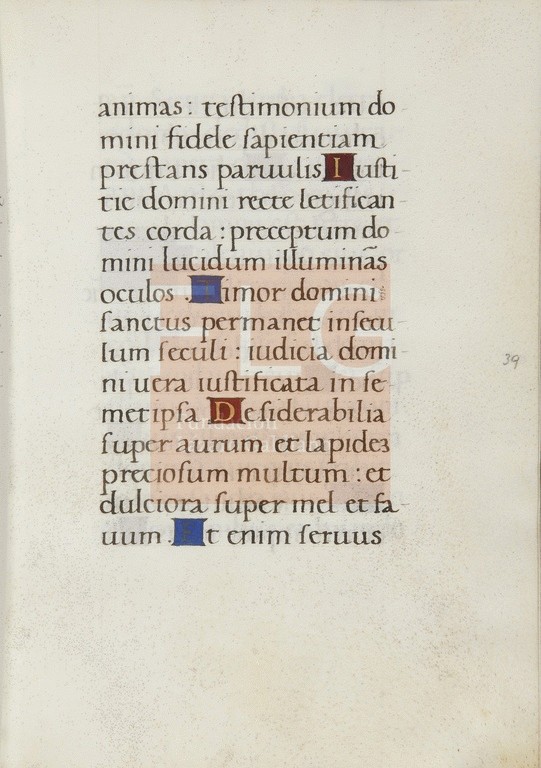 animas: testimonium do-
mini fidele sapientiam
prestans paruulis Iusti-
tie domini recte letifican-
tes corda: preceptum do-
mini lucidum illuminās
oculos. Timor domini
sanctus permanet insecu-
lum seculi: iudicia domi-
ni uera iustificata in se-
metipsa. Desiderabilia
super aurum et lapidez
preciosum multum: et
dulciora super mel et fa-
uum. Et enim seruus
39
FLG
Fundación